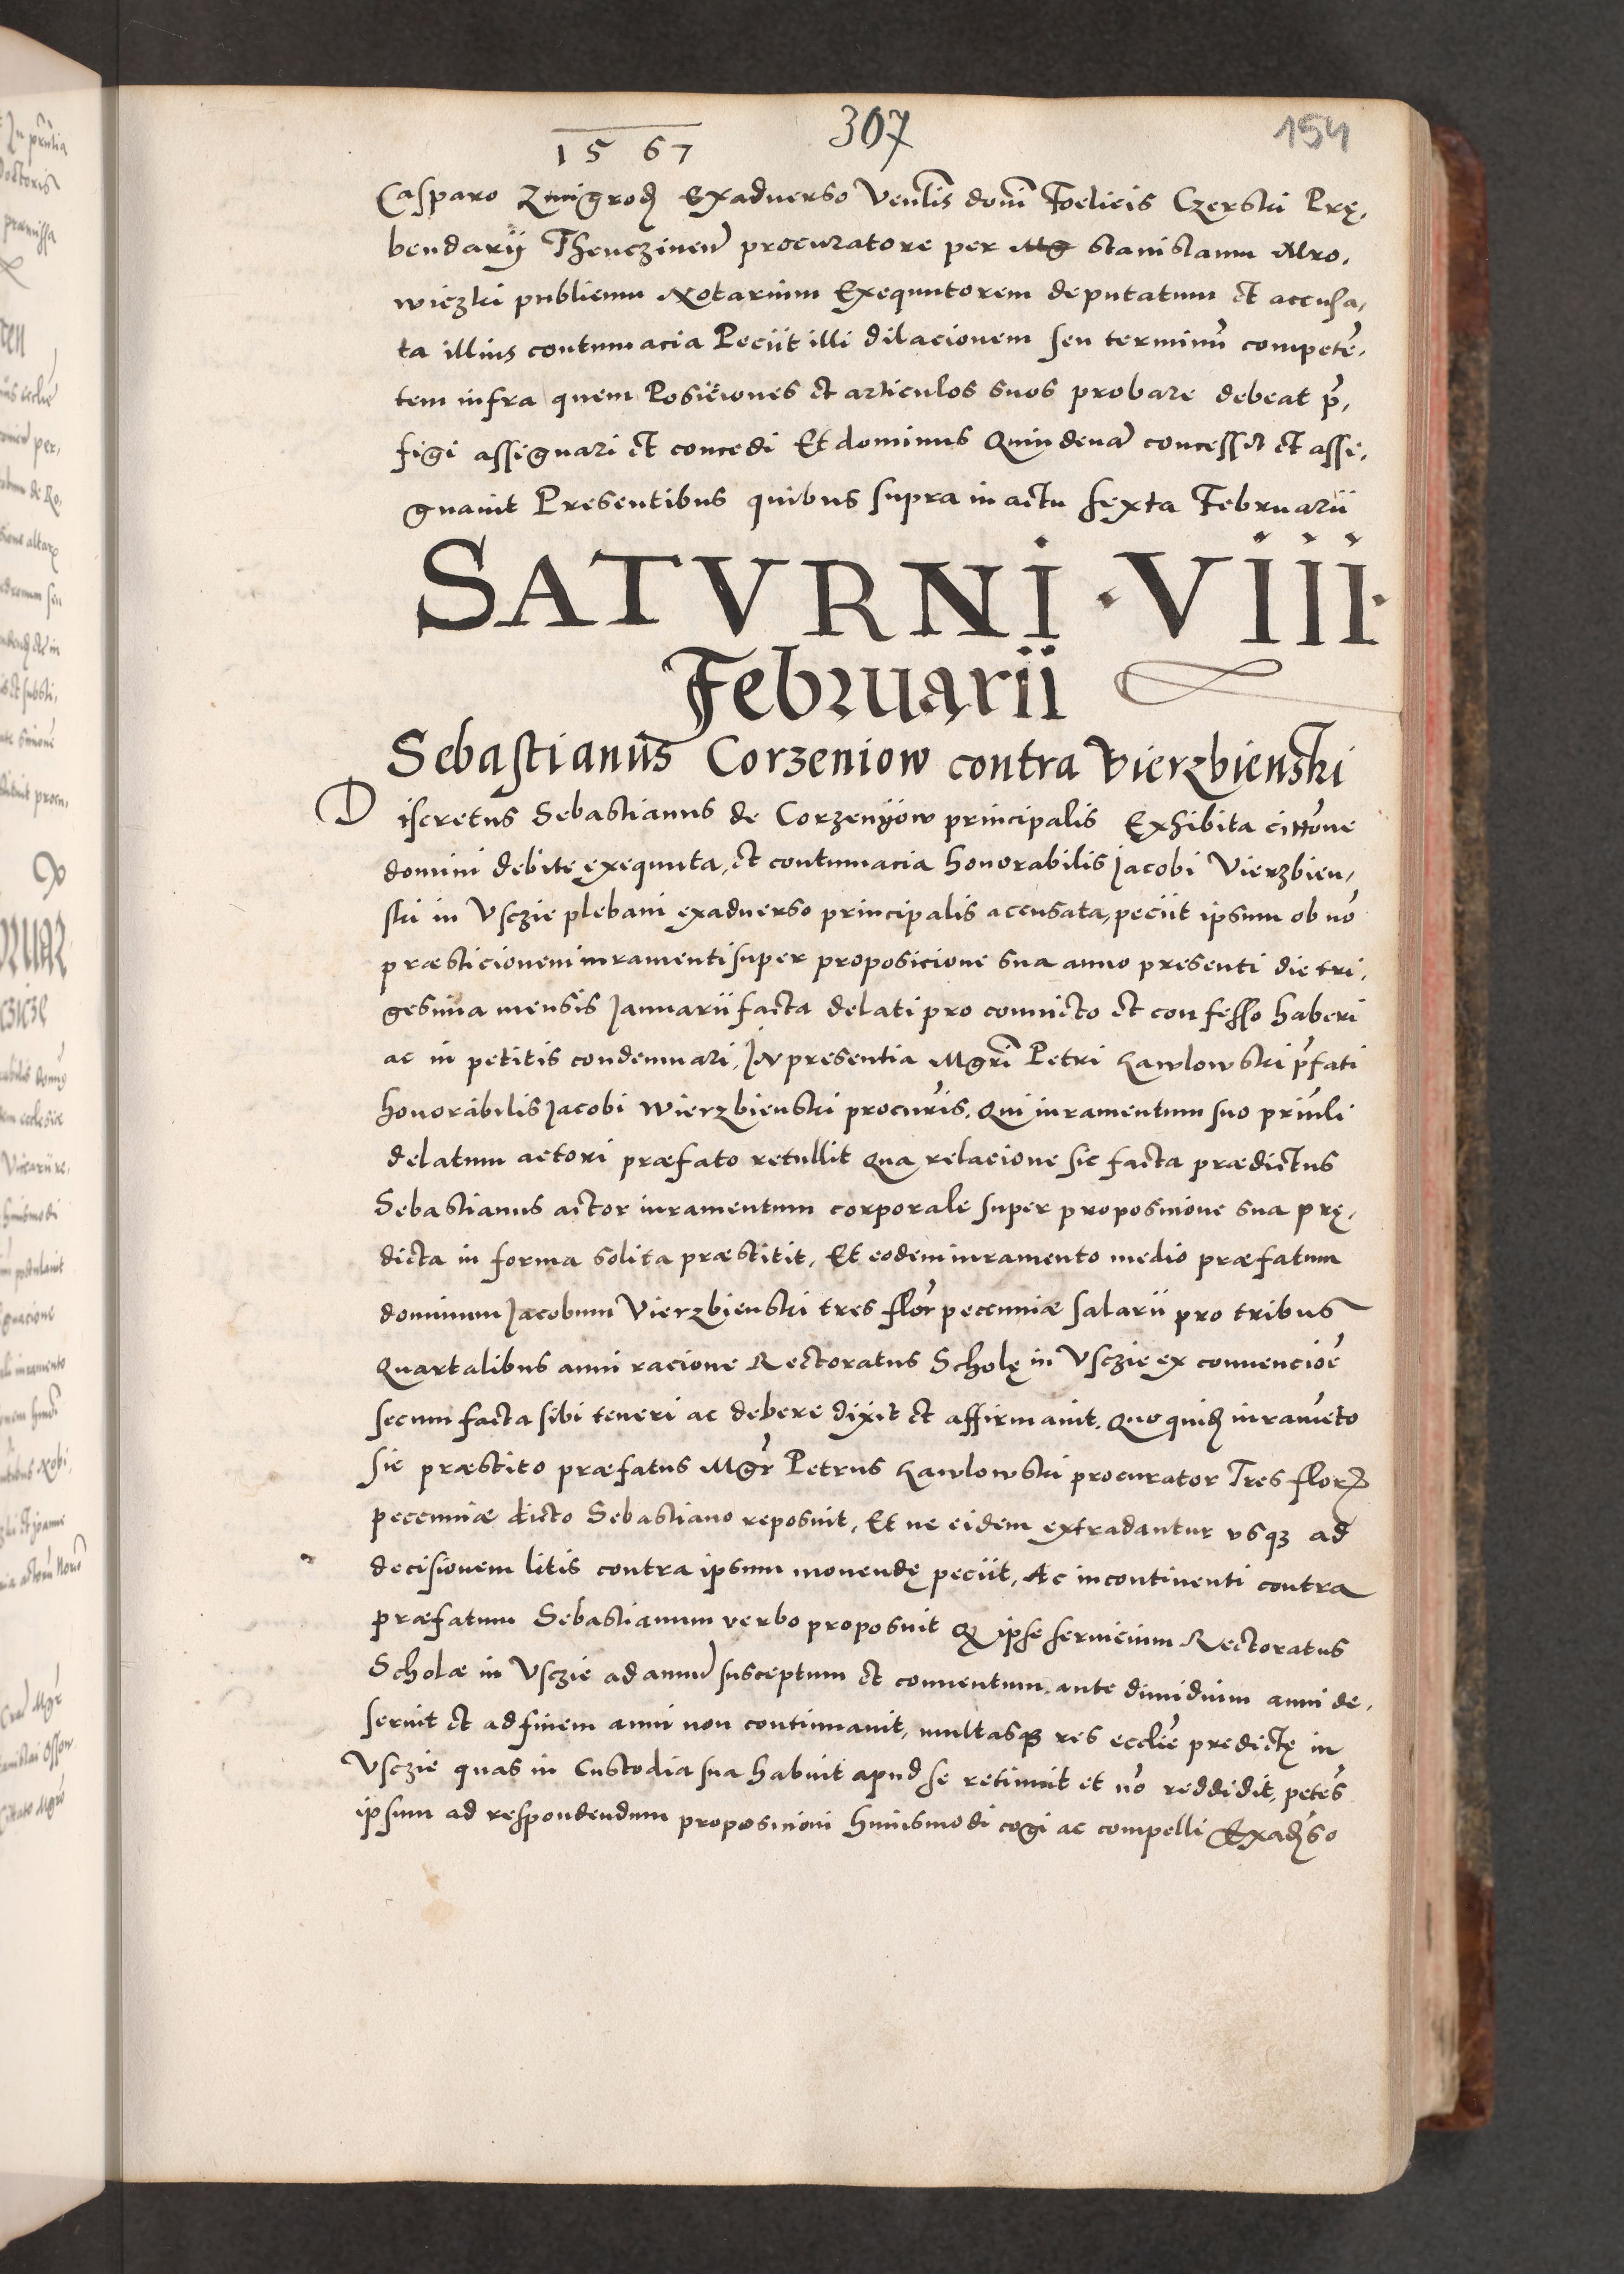 1567
307
154
Casparo Zmigrod Exaduerso Venlis domi Foelicis Czerski Prę,
bendarij Thenczinen procuratore per Mg Stanislaum Mro,
wiczki publicum Notarium Exequutorem deputatum et accusa,
ta illius contumacia Peciit illi dilacionem seu terminū competē,
tem infra quem Posiciones et articulos suos probare debeat p̄,
figi assignari et concedi Et dominus Quindenā concessit et assi,
gnauit Presentibus quibus supra in actu sexta Februarii
SATVRNI · VIII ·
Februarii
Sebastianus Corzeniow contra Vierzbienski
Discretus Sebastianus de Corzenyow principalis Exhibita cittone
domini debite exequuta, et contumacia honorabilis Jacobi Vierzbien,
ski in Vsczie plebani exaduerso principalis accusata, peciit ipsum ob nō
præsticionem iuramenti super proposicione sua anno presenti die tri,
gesima mensis Januarii facta delati pro conuicto et confesso haberi
ac in petitis condemnari, In presentia Mgri Petri Kawlowski p̄fati
honorabilis Jacobi Wierzbienski procuris. Qui iuramentum suo prinli
delatum actori præfato retullit Qua relacione sic facta prædictus
Sebastianus actor iuramentum corporale super proposicione sua prę,
dicta in forma solita præstitit, Et eodem iuramento medio præfatum
dominum Jacobum Vierzbienski tres flor pecuniæ salarii pro tribus
Quartalibus anni racione Rectoratus Scholę in Vsczie ex conuencioē
secum facta sibi teneri ac debere dixit et affirmauit. Quo quid iurameto
sic præstito præfatus Mgr Petrus Kawlowski procurator Tres flor
pecuniæ dicto Sebastiano reposuit, Et ne eidem extradantur vsq ad
decisionem litis contra ipsum mouendę peciit, Ac incontinenti contra
præfatum Sebastianum verbo proposuit Q ipse seruicium Rectoratus
Scholæ in Vsczie ad annū susceptum et conuentum ante dimidium anni de,
seruit et ad finem anni non continuauit, multasq res ecclie predictę in
Vsczie quas in Custodia sua habuit apud se retinuit et nō reddidit, petēs
ipsum ad respondendum proposicioni huiusmodi cogi ac compelli Exadso